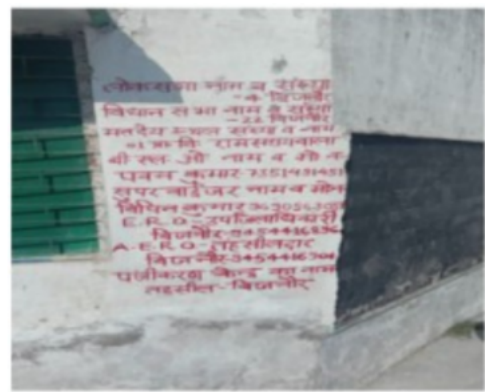 लोकसभा नाम व संख्या
-4 बिजनौर
विधान सभा नाम व संख्या
-22 बिजनौर
मतदेय स्थल संख्या व नाम
रामसहायवाला
बी एल ओ नाम व मो न
पवन कुमार-7351431451
सुपरवाईजर नाम व मोन
विपिन कुमार
E.R.O-उपजिलाधिकारी
बिजनौर-9454416896
A-E.R.O-तहसीलदार
बिजनौर-9454416904
पंजीकरण केन्द्र का नाम
तहसील-बिजनौर